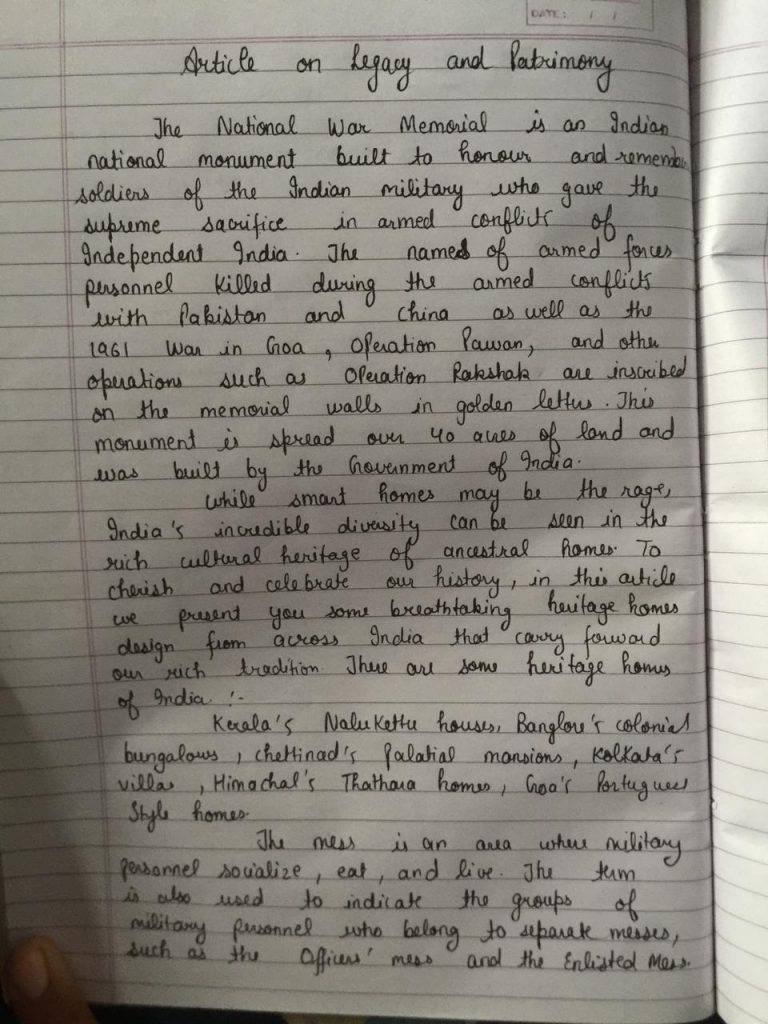 DATE: / /
Article on Legacy and Patrimony
The National War Memorial is an Indian
national monument built to honour and remember
soldiers of the Indian military who gave the
supreme sacrifice in armed conflicts of
Independent India. The named of armed forces
personnel killed during the armed conflicts
with Pakistan and China as well as the
1961 War in Goa, Operation Pawan, and other
operations such as Operation Rakshak are inscribed
on the memorial walls in golden letters. This
monument is spread over 40 acres of land and
was built by the Government of India.
While smart homes may be the rage,
India's incredible diversity can be seen in the
rich cultural heritage of ancestral homes. To
cherish and celebrate our history, in this article
we present you some breathtaking heritage homes
design from across India that carry forward
our rich tradition. There are some heritage homes
of India :-
Kerala's Nalukettu houses, Banglore's colonial
bungalows, chettinad's Palatial mansions, Kolkata's
villas, Himachal's Thathara homes, Goa's Portuguese
Style homes.
The mess is an area where military
personnel socialize, eat, and live. The term
is also used to indicate the groups of
military personnel who belong to separate messes,
such as the Officers' mess and the Enlisted Mess.